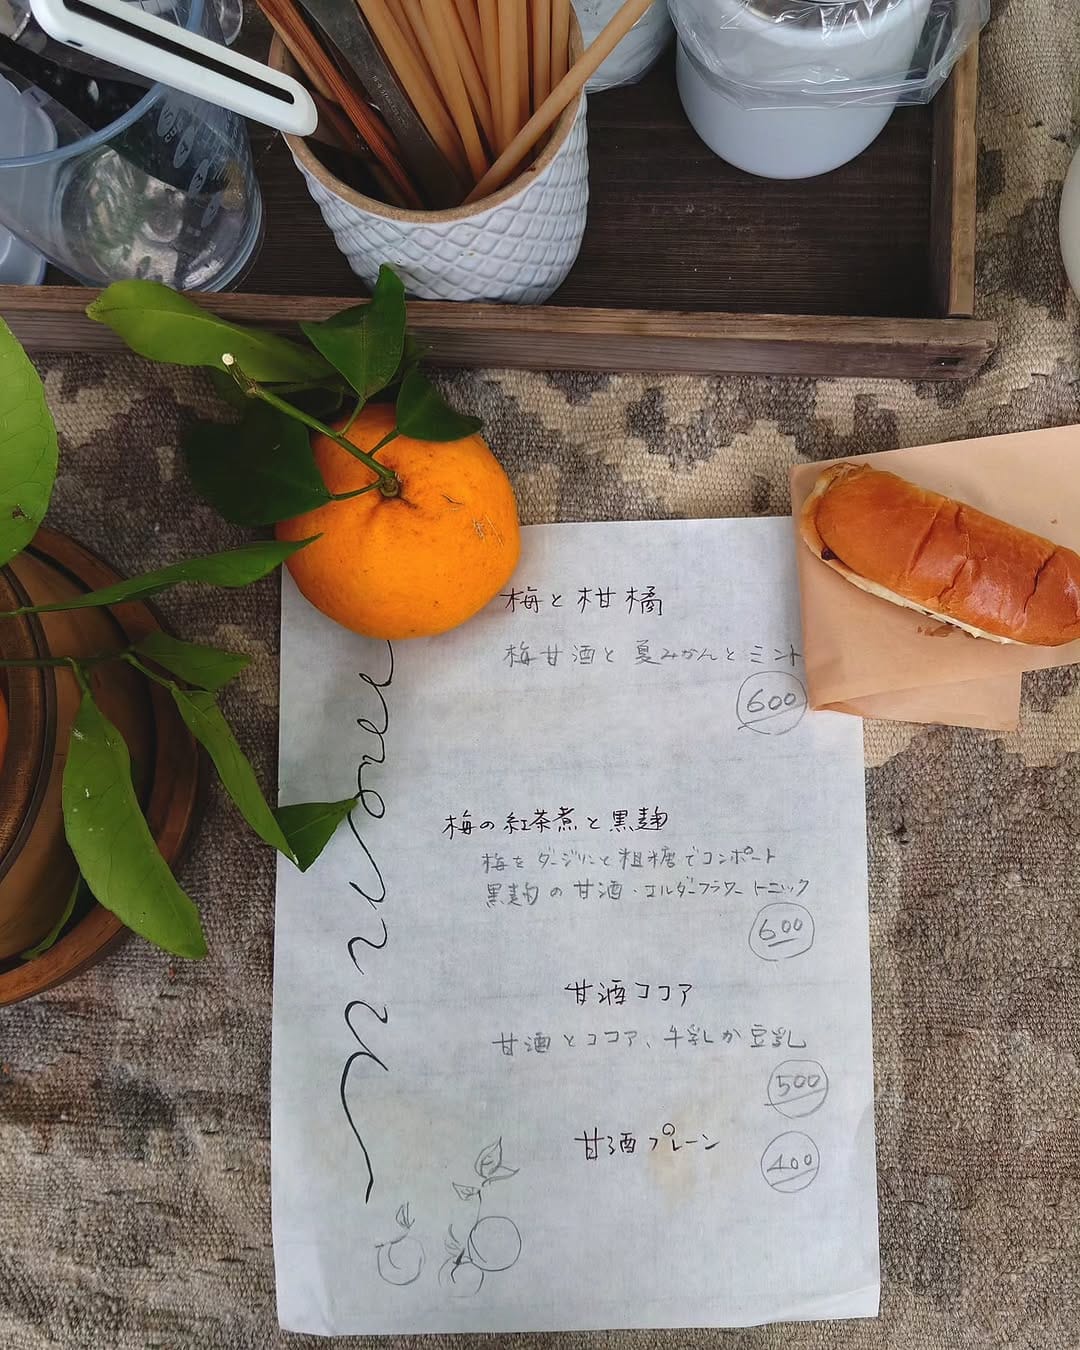 梅と柑橘
梅甘酒と夏みかんとミント
600
梅の紅茶煮と黒麹
梅をダージリンと粗糖でコンポート
黒麹の甘酒・エルダーフラワートニック
600
甘酒ココア
甘酒とココア、牛乳か豆乳
500
甘酒プレーン
400